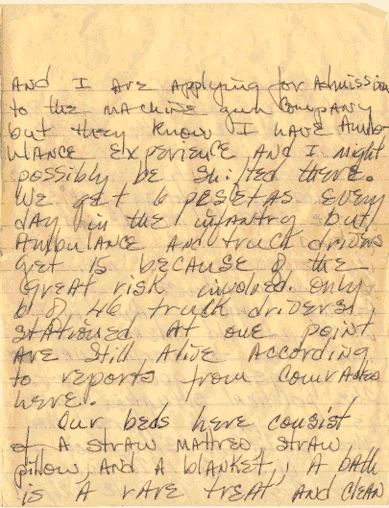 AND I ARE Applying for Admission
to the MACHINE gun Company
but they know I HAVE Ambu-
lANCE EXPERIENCE, AND I might
possibly be shifted there.
We get 6 PESETAS EVERY
day in the infantry but
AmbulANCE AND truck drivers
get 15 BECAUSE of the
great risk involved. only
6 of 46 truck drivers,
stationed At one point
ARE still Alive According
to reports from Comrades
here.
Our beds here consist
of A STRAW MATTRES STRAW
pillow, AND A blanket, A bath
is A RARE TREAT AND CLEAN